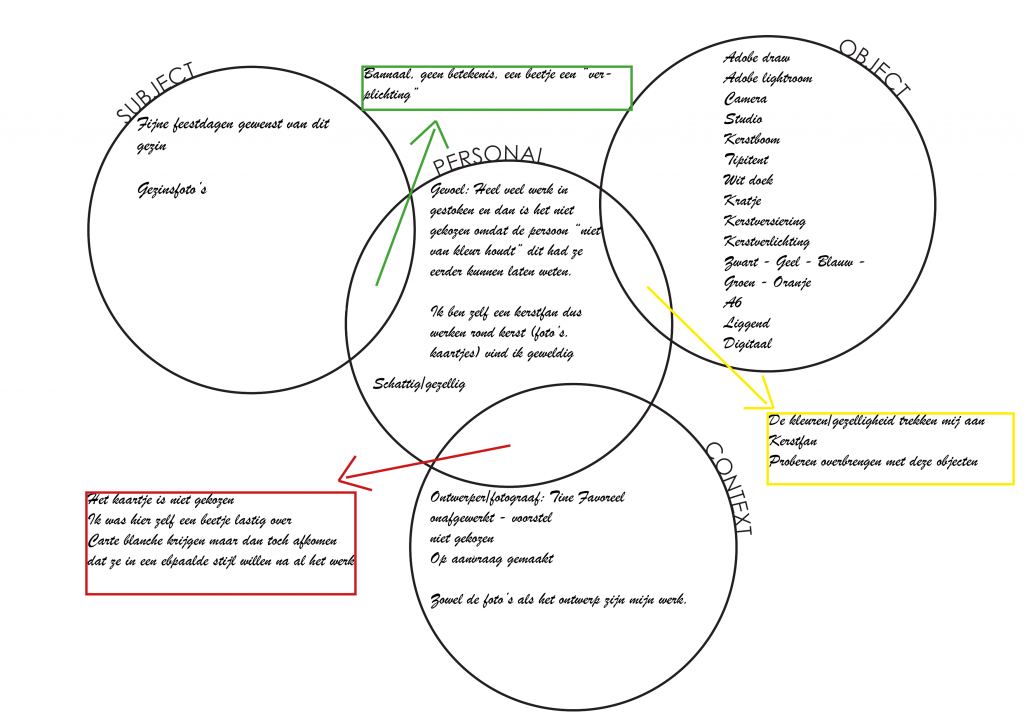 SUBJECT
Fijne feestdagen gewenst van dit
gezin
Gezinsfoto's
Bannaal, geen betekenis, een beetje een "ver-
plichting"
PERSONAL
Gevoel: Heel veel werk in
gestoken en dan is het niet
gekozen omdat de persoon "niet
van kleur houdt" dit had ze
eerder kunnen laten weten.
Ik ben zelf een kerstfan dus
werken rond kerst (foto's,
kaartjes) vind ik geweldig
Schattig/gezellig
OBJECT
Adobe draw
Adobe lightroom
Camera
Studio
Kerstboom
Tipitent
Wit doek
Kratje
Kerstversiering
Kerstverlichting
Zwart - Geel - Blauw -
Groen - Oranje
A6
Liggend
Digitaal
De kleuren/gezelligheid trekken mij aan
Kerstfan
Proberen overbrengen met deze objecten
Het kaartje is niet gekozen
Ik was hier zelf een beetje lastig over
Carte blanche krijgen maar dan toch afkomen
dat ze in een ebpaalde stijl willen na al het werk
CONTEXT
Ontwerper/fotograaf: Tine Favoreel
onafgewerkt - voorstel
niet gekozen
Op aanvraag gemaakt
Zowel de foto's als het ontwerp zijn mijn werk.